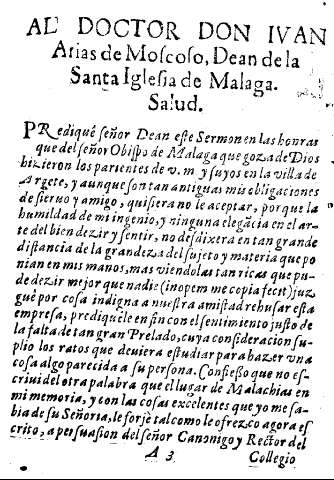 AL DOCTOR DON IVAN
Arias de Moscoso, Dean de la
Santa Iglesia de Malaga.
Salud.
PRediquè señor Dean este Sermon en las honras
que del señor Obispo de Malaga que goza de Dios
hizieron los parientes de v. m y suyos en la villa de
Argete, y aunque son tan antiguas mis obligaciones
de sieruo y amigo, quisiera no le aceptar, porque la
humildad de mi ingenio, y ninguna elegācia en el ar-
te del bien dezir y sentir, no desdixera en tan grande
distancia de la grandeza del sujeto y materia que po
nian en mis manos, mas viendolas tan ricas que pu-
de dezir mejor que nadie (inopem me copia fecit) juz
guè por cosa indigna a nuestra amistad rehusar esta
empresa, prediquèle en fin con el sentimiento justo de
la falta de tan gran Prelado, cuya consideracion su-
plio los ratos que deuiera estudiar para hazer vna
cosa algo parecida a su persona. Confiesso que no es-
criui del otra palabra que el lugar de Malachias en
mi memoria, y con las cosas excelentes que yo me sa-
bia de su Señoria, le forjè tal como le ofrezco agora es
crito, a persuasion del señor Canonigo y Rector del
A 3 Collegio